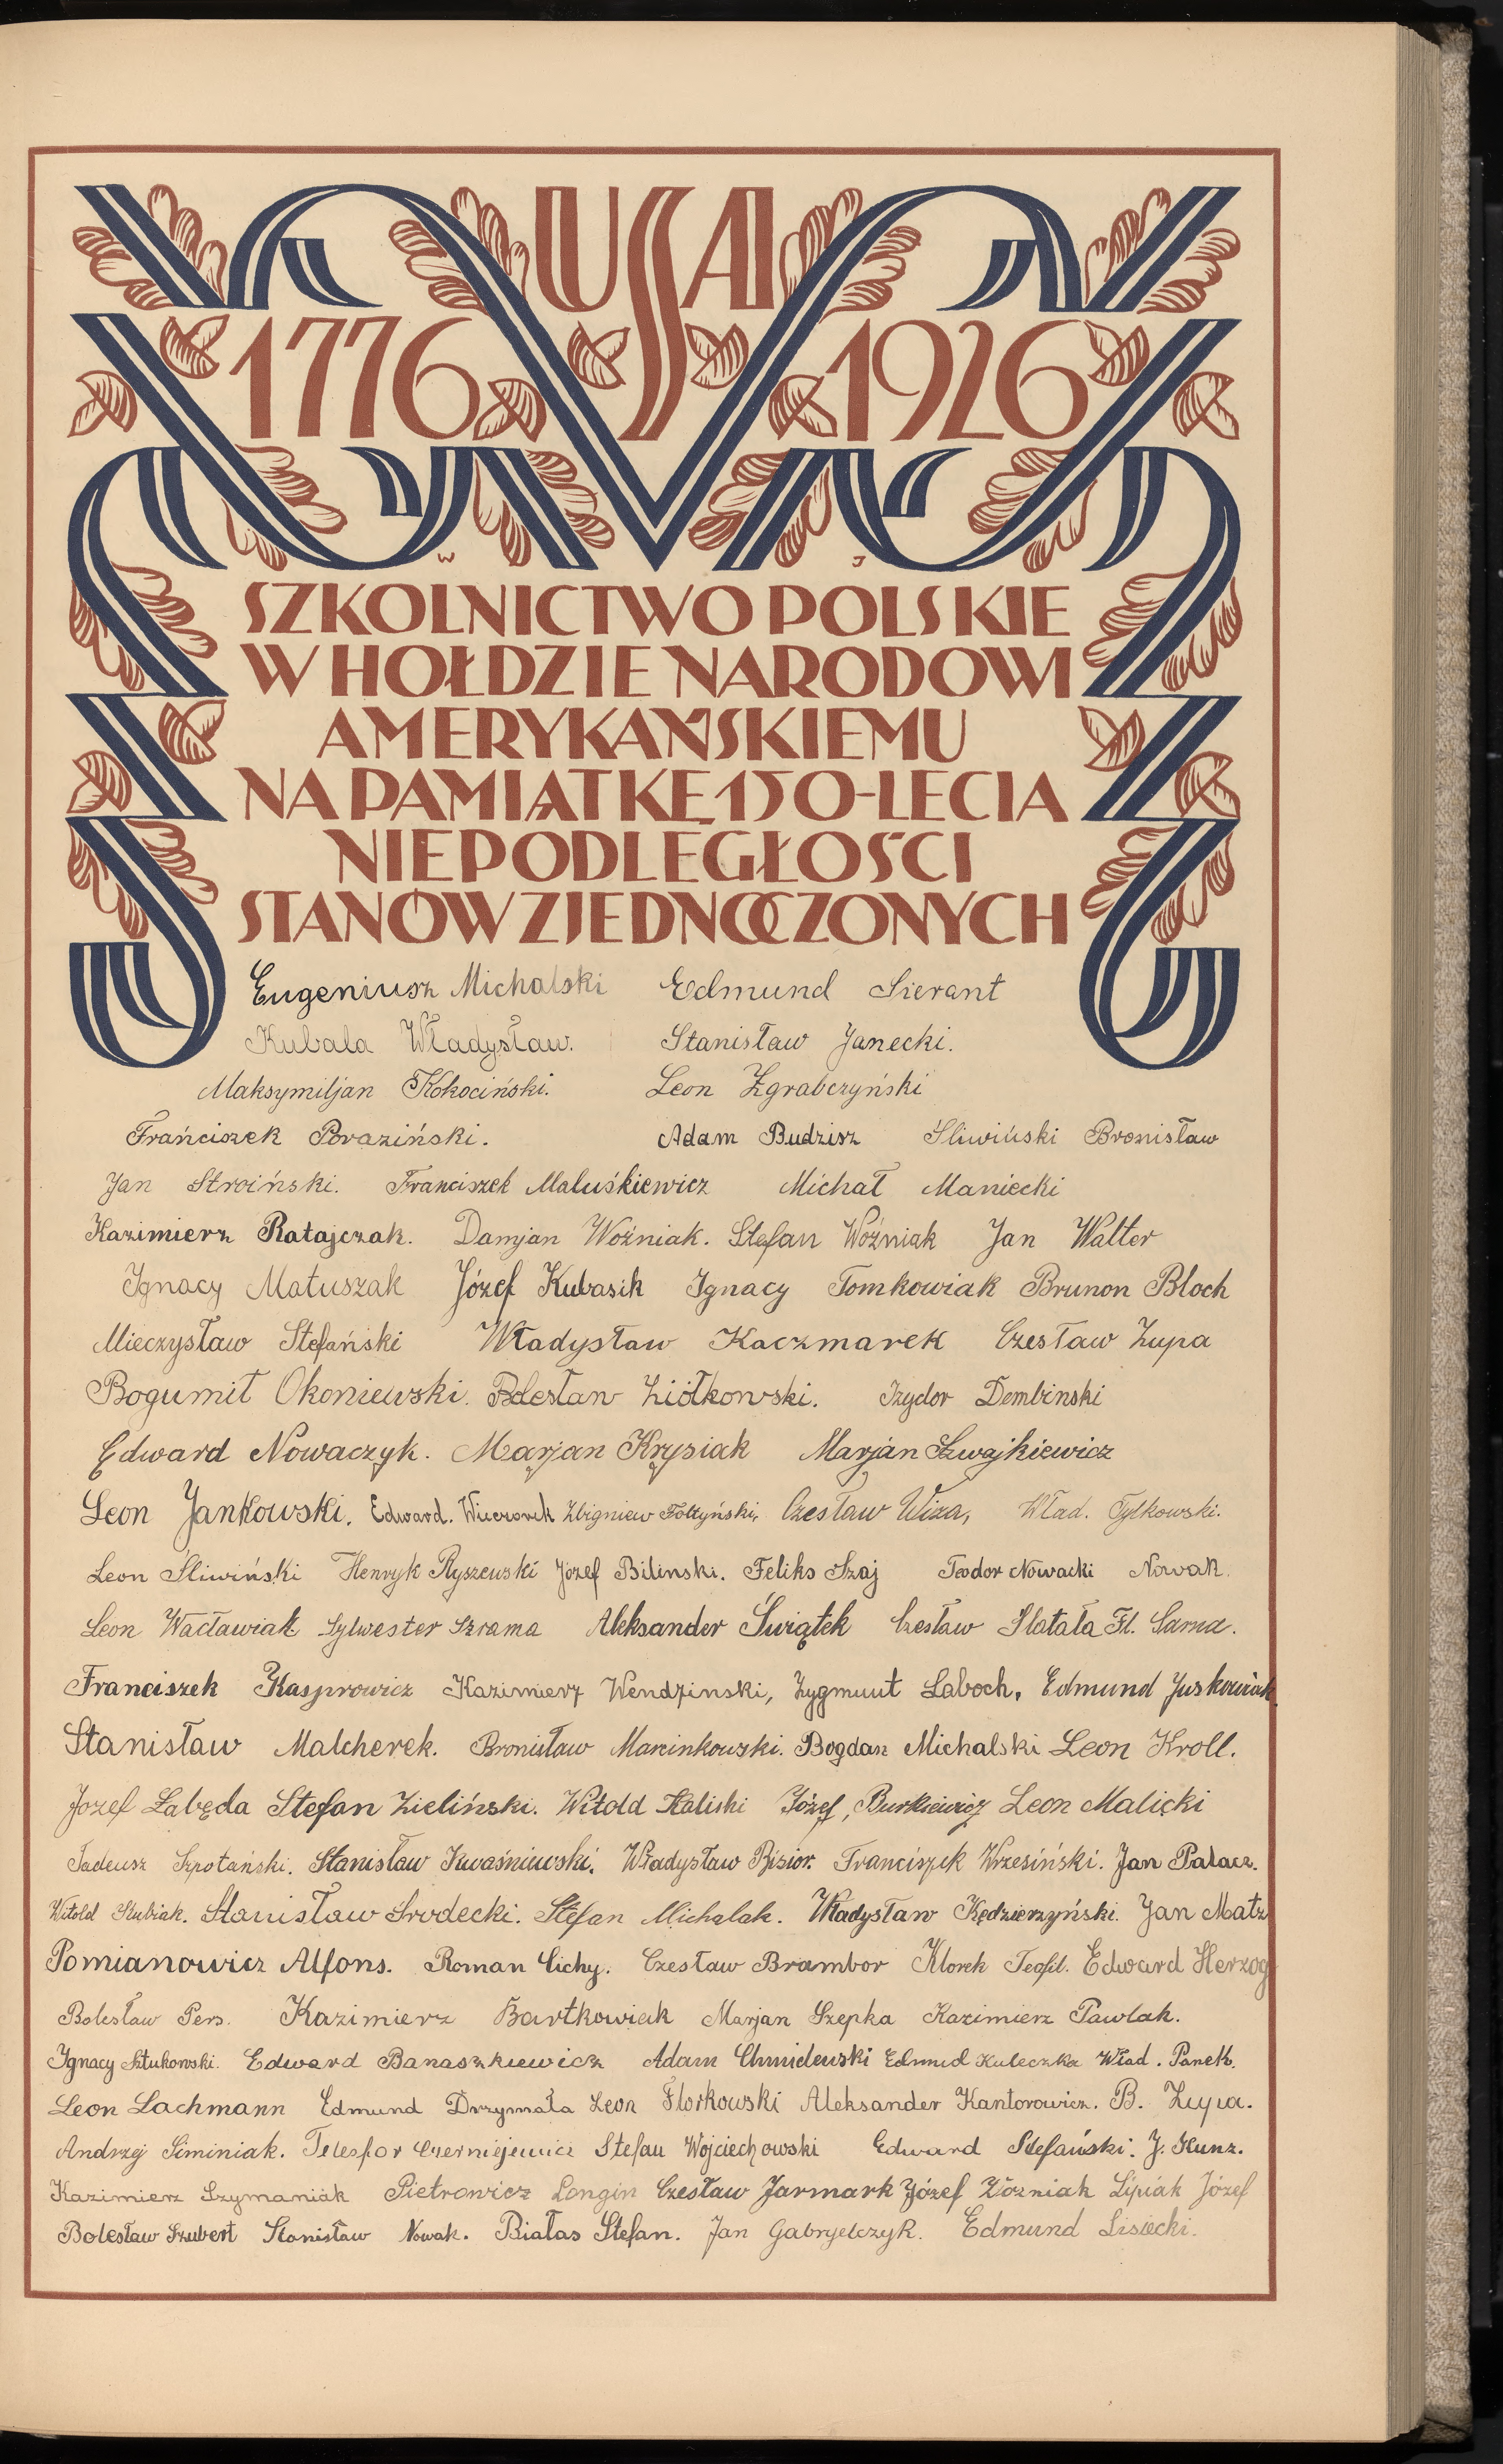 USA
1776 1926
W J
SZKOLNICTWO POLSKIE
W HOŁDZIE NARODOWI
AMERYKAŃSKIEMU
NA PAMIĄTKĘ 150-LECIA
NIEPODLEGŁOŚCI
STANÓW ZJEDNOCZONYCH
Eugeniusz Michalski Edmund Sierant
Kubala Władysław. Stanisław Janecki.
Maksymiljan Kokociński. Leon Zgrabczyński
Frańciszek Poraziński. Adam Budzisz Sliwiński Bronisław
Jan Stroiński. Franciszek Maluśkiewicz Michał Maniecki
Kazimierz Ratajczak. Damjan Woźniak. Stefan Woźniak Jan Walter
Ignacy Matuszak Józef Kubasik Ignacy Tomkowiak Brunon Bloch
Mieczysław Stefański Władysław Kaczmarek Czesław Zupa
Bogumił Okoniewski. Bolesław Ziółkowski. Izydor Dembinski
Edward Nowaczyk. Marjan Krysiak Marjan Szwajkiewicz
Leon Jankowski. Edward. Wieczorek Zbigniew Fołtyński, Czesław Wiza, Wład. Tylkowski.
Leon Śliwiński Henryk Ryszewski Józef Bilinski. Feliks Szaj Teodor Nowacki Nowak.
Leon Wacławiak Sylwester Szrama Aleksander Świątek Czesław Słatała Fl. Sarna.
Franciszek Kasprowicz Kazimierz Wendzinski, Zygmunt Laboch, Edmund Juskowiak
Stanisław Malcherek. Bronisław Marcinkowski. Bogdan Michalski Leon Kroll.
Jozef Łabęda Stefan Zieliński. Witold Kaliski Józef, Burkiewicz Leon Malicki
Tadeusz Szpotański. Stanisław Kwaśniewski. Władysław Bizior. Franciszek Wrzesiński. Jan Pałacz.
Witold Kubiak. Stanisław Środecki. Stefan Michalak. Władysław Kędzierzyński. Jan Matz
Pomianowicz Alfons. Roman Cichy. Czesław Brambor Klorek Teofil. Edward Herzog
Bolesław Pers. Kazimierz Bartkowiak Marjan Szepka Kazimierz Pawlak.
Ignacy Sztukowski. Edward Banaszkiewicz Adam Chmielewski Edmud Kuleczka Wład. Panek.
Leon Lachmann Edmund Drzymała Leon Florkowski Aleksander Kantorowicz. B. Zupa.
Andrzej Siminiak. Telesfor Czerniejewicz Stefan Wojciechowski Edward Stefański. J. Kunz.
Kazimierz Szymaniak Pietrowicz Longin Czesław Jarmark Józef Woźniak Lipiak Józef
Bolesław Szubert Stanisław Nowak. Białas Stefan. Jan Gabryelczyk. Edmund Lisiecki.